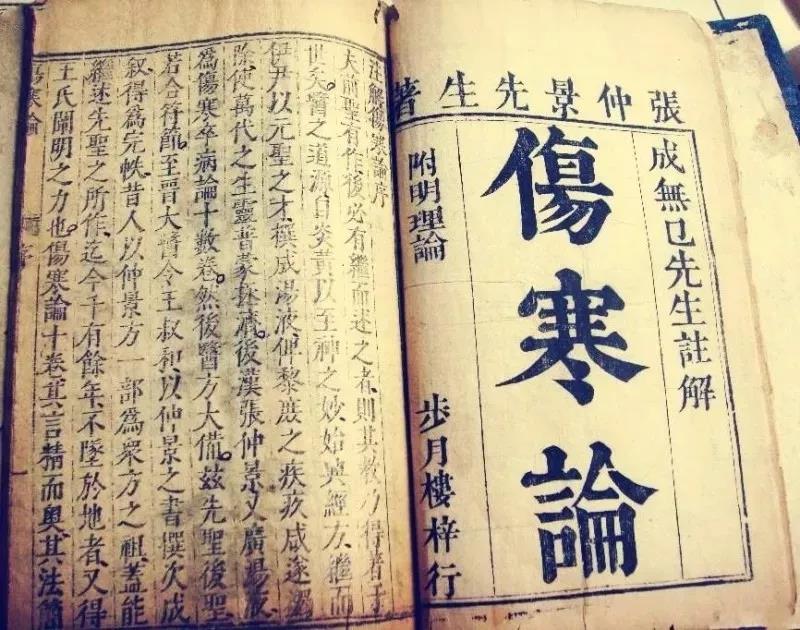 張仲景先生著
成無已先生註解
傷寒論
附明理論
步月樓梓行
注解傷寒論序
夫前聖有作後必有繼而述之者則其教乃得著于
世矣。醫之道源自炎黃以至神之妙始興經方繼而
伊尹以元聖之才撰成湯液俾黎庶之疾疢咸遂蠲
除使萬代之生靈普蒙拯濟後漢張仲景又廣湯液
爲傷寒卒病論十數卷。然後醫方大備。茲先聖後聖
若合符節。至晉大醫令王叔和以仲景之書撰次成
叙得爲完帙昔人以仲景方一部爲衆方之祖蓋能
繼述先聖之所作迄今千有餘年不墜於地者又得
王氏闡明之力也。傷寒論十卷其言精而奧其法簡
傷寒論
序